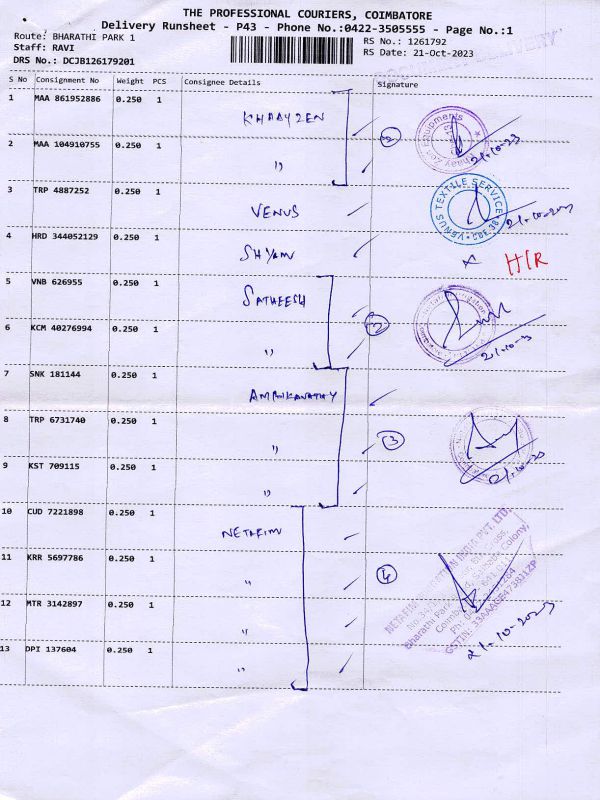 THE PROFESSIONAL COURIERS, COIMBATORE
Delivery Runsheet - P43 - Phone No.:0422-3505555 - Page No.:1
Route: BHARATHI PARK 1
Staff: RAVI
DRS No.: DCJB126179201
RS No.: 1261792
RS Date: 21-Oct-2023
S No Consignment No Weight PCS Consignee Details Signature
1 MAA 861952886 0.250 1
2 MAA 104910755 0.250 1 "
21.10.23
3 TRP 4887252 0.250 1 VENUS
VENUS TEXTILE SERVICE
4 HRD 344052129 0.250 1 SHYAM
5 VNB 626955 0.250 1 SATHEESH
6 KCM 40276994 0.250 1 "
7 SNK 181144 0.250 1
8 TRP 6731740 0.250 1 "
3
9 KST 709115 0.250 1 "
10 CUD 7221898 0.250 1 NETAFIM
11 KRR 5697786 0.250 1 "
4
12 MTR 3142897 0.250 1 "
13 DPI 137604 0.250 1 "
INDIA PVT. LTD.
Bharathi Park
Colony,
21.10.2023